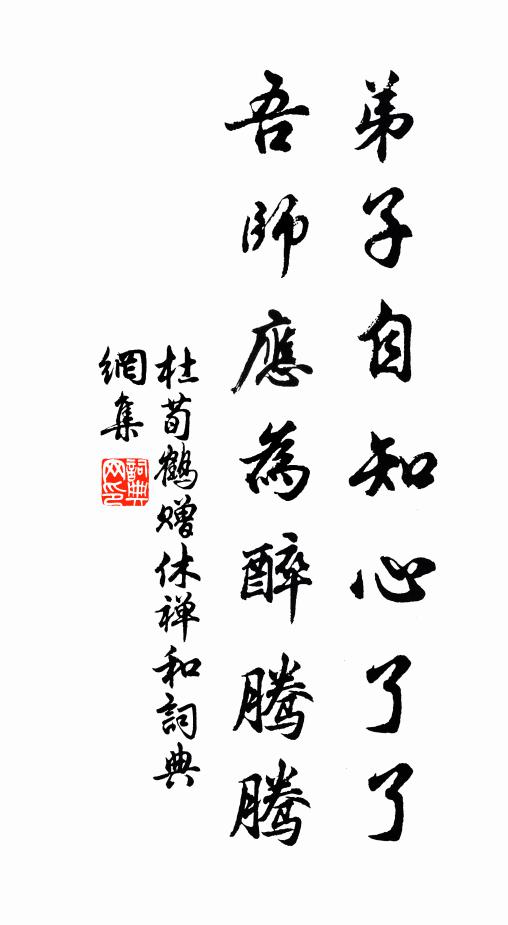 弟子自知心了了
吾師應為醉騰騰
杜荀鶴赠休禅和詞典
網集
詞典網印